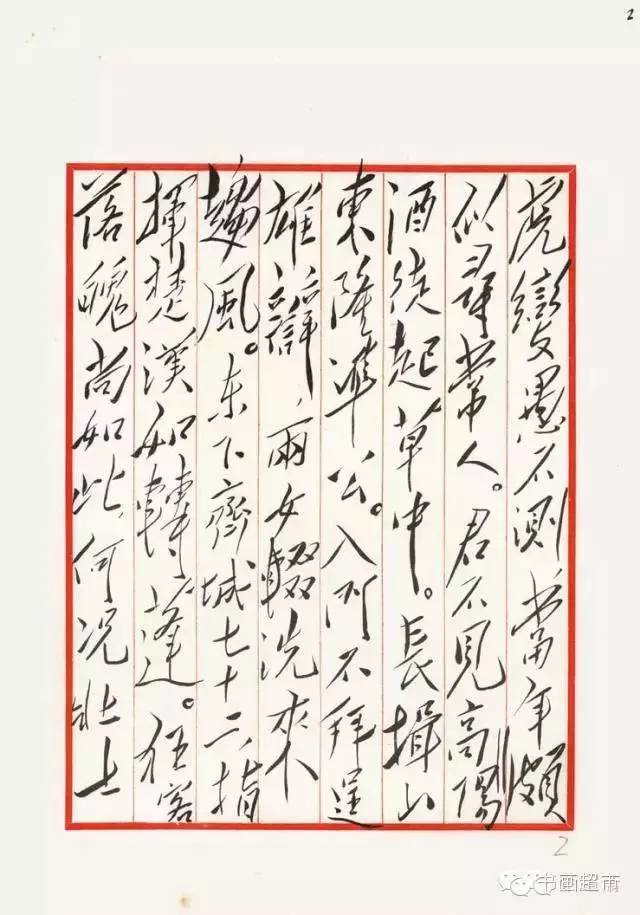 2
虎變愚不測當年頗
似尋常人。君不見高陽
酒徒起草中。長揖山
東隆準公。入门不拜逞
雄辯，兩女輟洗來
趨風。东下齊城七十二，指
揮楚漢如轉蓬。狂客
落魄尚如此，何况壯士
2
书画超市